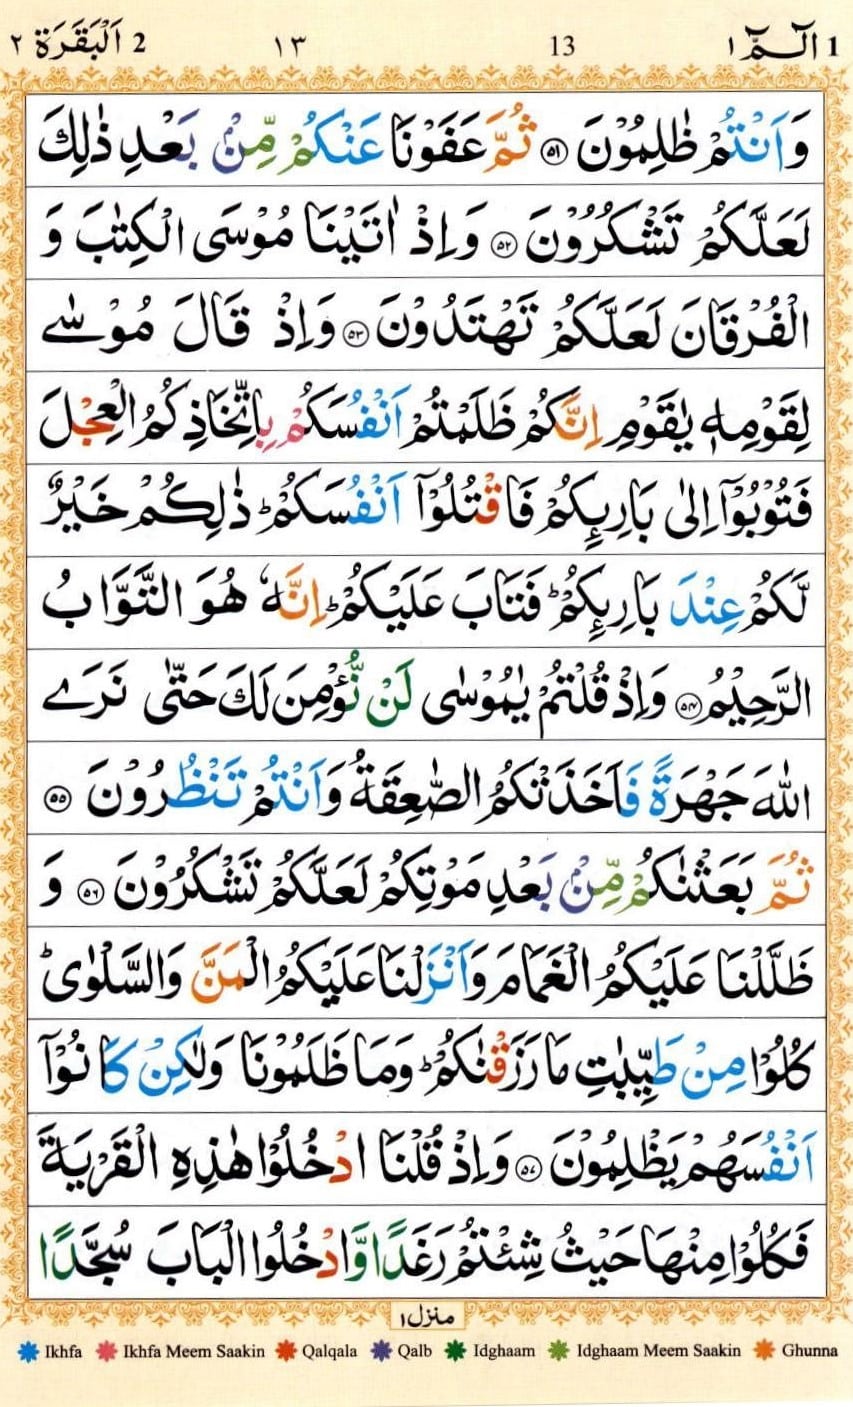 1 الٓـمّٓ ١ 13 ١٣ 2 اَلْبَقَرَة ٢
وَاَنْتُمْ ظٰلِمُوْنَ ۝٥١ ثُمَّ عَفَوْنَا عَنْكُمْ مِّنْۢ بَعْدِ ذٰلِكَ
لَعَلَّكُمْ تَشْكُرُوْنَ ۝٥٢ وَاِذْ اٰتَيْنَا مُوْسَى الْكِتٰبَ وَ
الْفُرْقَانَ لَعَلَّكُمْ تَهْتَدُوْنَ ۝٥٣ وَاِذْ قَالَ مُوْسٰے
لِقَوْمِهٖ يٰقَوْمِ اِنَّكُمْ ظَلَمْتُمْ اَنْفُسَكُمْ بِاتِّخَاذِكُمُ الْعِجْلَ
فَتُوْبُوْٓا اِلٰى بَارِىِٕكُمْ فَاقْتُلُوْٓا اَنْفُسَكُمْ ؕ ذٰلِكُمْ خَيْرٌ
لَّكُمْ عِنْدَ بَارِىِٕكُمْ ؕ فَتَابَ عَلَيْكُمْ ؕ اِنَّهٗ هُوَ التَّوَّابُ
الرَّحِيْمُ ۝٥٤ وَاِذْ قُلْتُمْ يٰمُوْسٰى لَنْ نُّؤْمِنَ لَكَ حَتّٰى نَرَے
اللهَ جَهْرَةً فَاَخَذَتْكُمُ الصّٰعِقَةُ وَاَنْتُمْ تَنْظُرُوْنَ ۝٥٥
ثُمَّ بَعَثْنٰكُمْ مِّنْۢ بَعْدِ مَوْتِكُمْ لَعَلَّكُمْ تَشْكُرُوْنَ ۝٥٦ وَ
ظَلَّلْنَا عَلَيْكُمُ الْغَمَامَ وَاَنْزَلْنَا عَلَيْكُمُ الْمَنَّ وَالسَّلْوٰى ؕ
كُلُوْا مِنْ طَيِّبٰتِ مَا رَزَقْنٰكُمْ ؕ وَمَا ظَلَمُوْنَا وَلٰكِنْ كَانُوْٓا
اَنْفُسَهُمْ يَظْلِمُوْنَ ۝٥٧ وَاِذْ قُلْنَا ادْخُلُوْا هٰذِهِ الْقَرْيَةَ
فَكُلُوْا مِنْهَا حَيْثُ شِئْتُمْ رَغَدًا وَّادْخُلُوا الْبَابَ سُجَّدًا
منزل١
Ikhfa Ikhfa Meem Saakin Qalqala Qalb Idghaam Idghaam Meem Saakin Ghunna